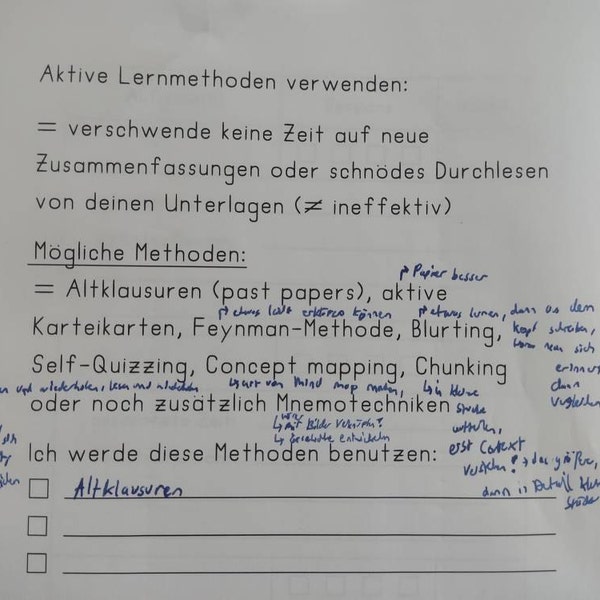 Aktive Lernmethoden verwenden:
= verschwende keine Zeit auf neue
Zusammenfassungen oder schnödes Durchlesen
von deinen Unterlagen (≠ ineffektiv)
Mögliche Methoden:
↱ Papier besser
= Altklausuren (past papers), aktive
↱ etwas erklären können ↱ etwas lernen, dann aus dem
Karteikarten, Feynman-Methode, Blurting,
Kopf schreiben,
man sich
Self-Quizzing, Concept mapping, Chunking
dann
und wiederholen, lesen und
↳ Art von Mind map machen, ↳ in kleine
oder noch zusätzlich Mnemotechniken
↳ mit Bilder
↳ Geschichte entwickeln
erst Context
Ich werde diese Methoden benutzen:
das größere,
dann in Detail
☐ Altklausuren
☐
☐